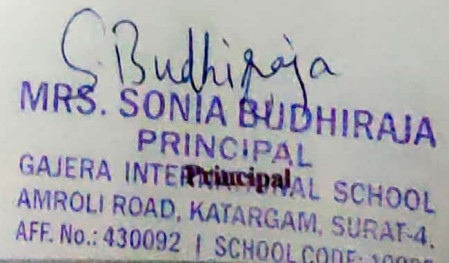 S. Budhiraja
MRS. SONIA BUDHIRAJA
PRINCIPAL
GAJERA INTERNATIONAL SCHOOL
Principal
AMROLI ROAD, KATARGAM, SURAT-4.
AFF. No.: 430092 | SCHOOL CODE: